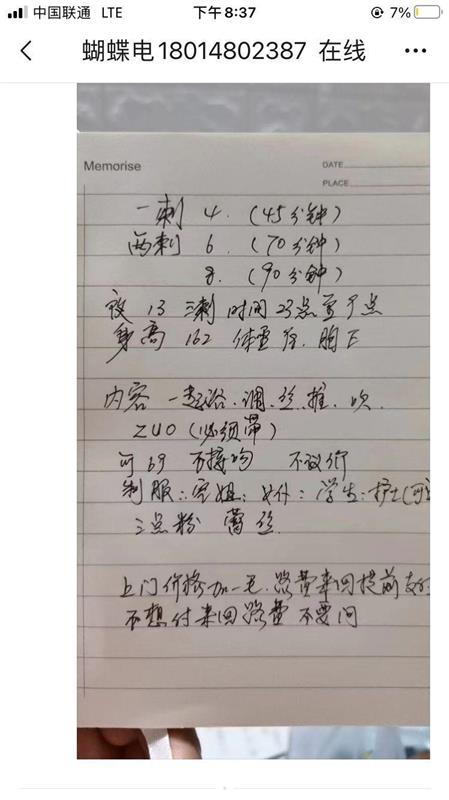 中国联通 LTE 下午8:37 7%
蝴蝶电18014802387 在线
Memorise
DATE
PLACE
一刺 4. (45分钟)
两刺 6. (70分钟)
8. (90分钟)
夜 13 三刺 时间 23点至7点
身高 162 体重 胸 E
内容 一起浴.调.丝.推.吹
ZUO (必须带)
可69 可接吻 不议价
制服: 空姐: 女仆: 学生: 护士
三点粉 蕾丝
上门价格加一毛.路费来回提前
不想付来回路费 不要问